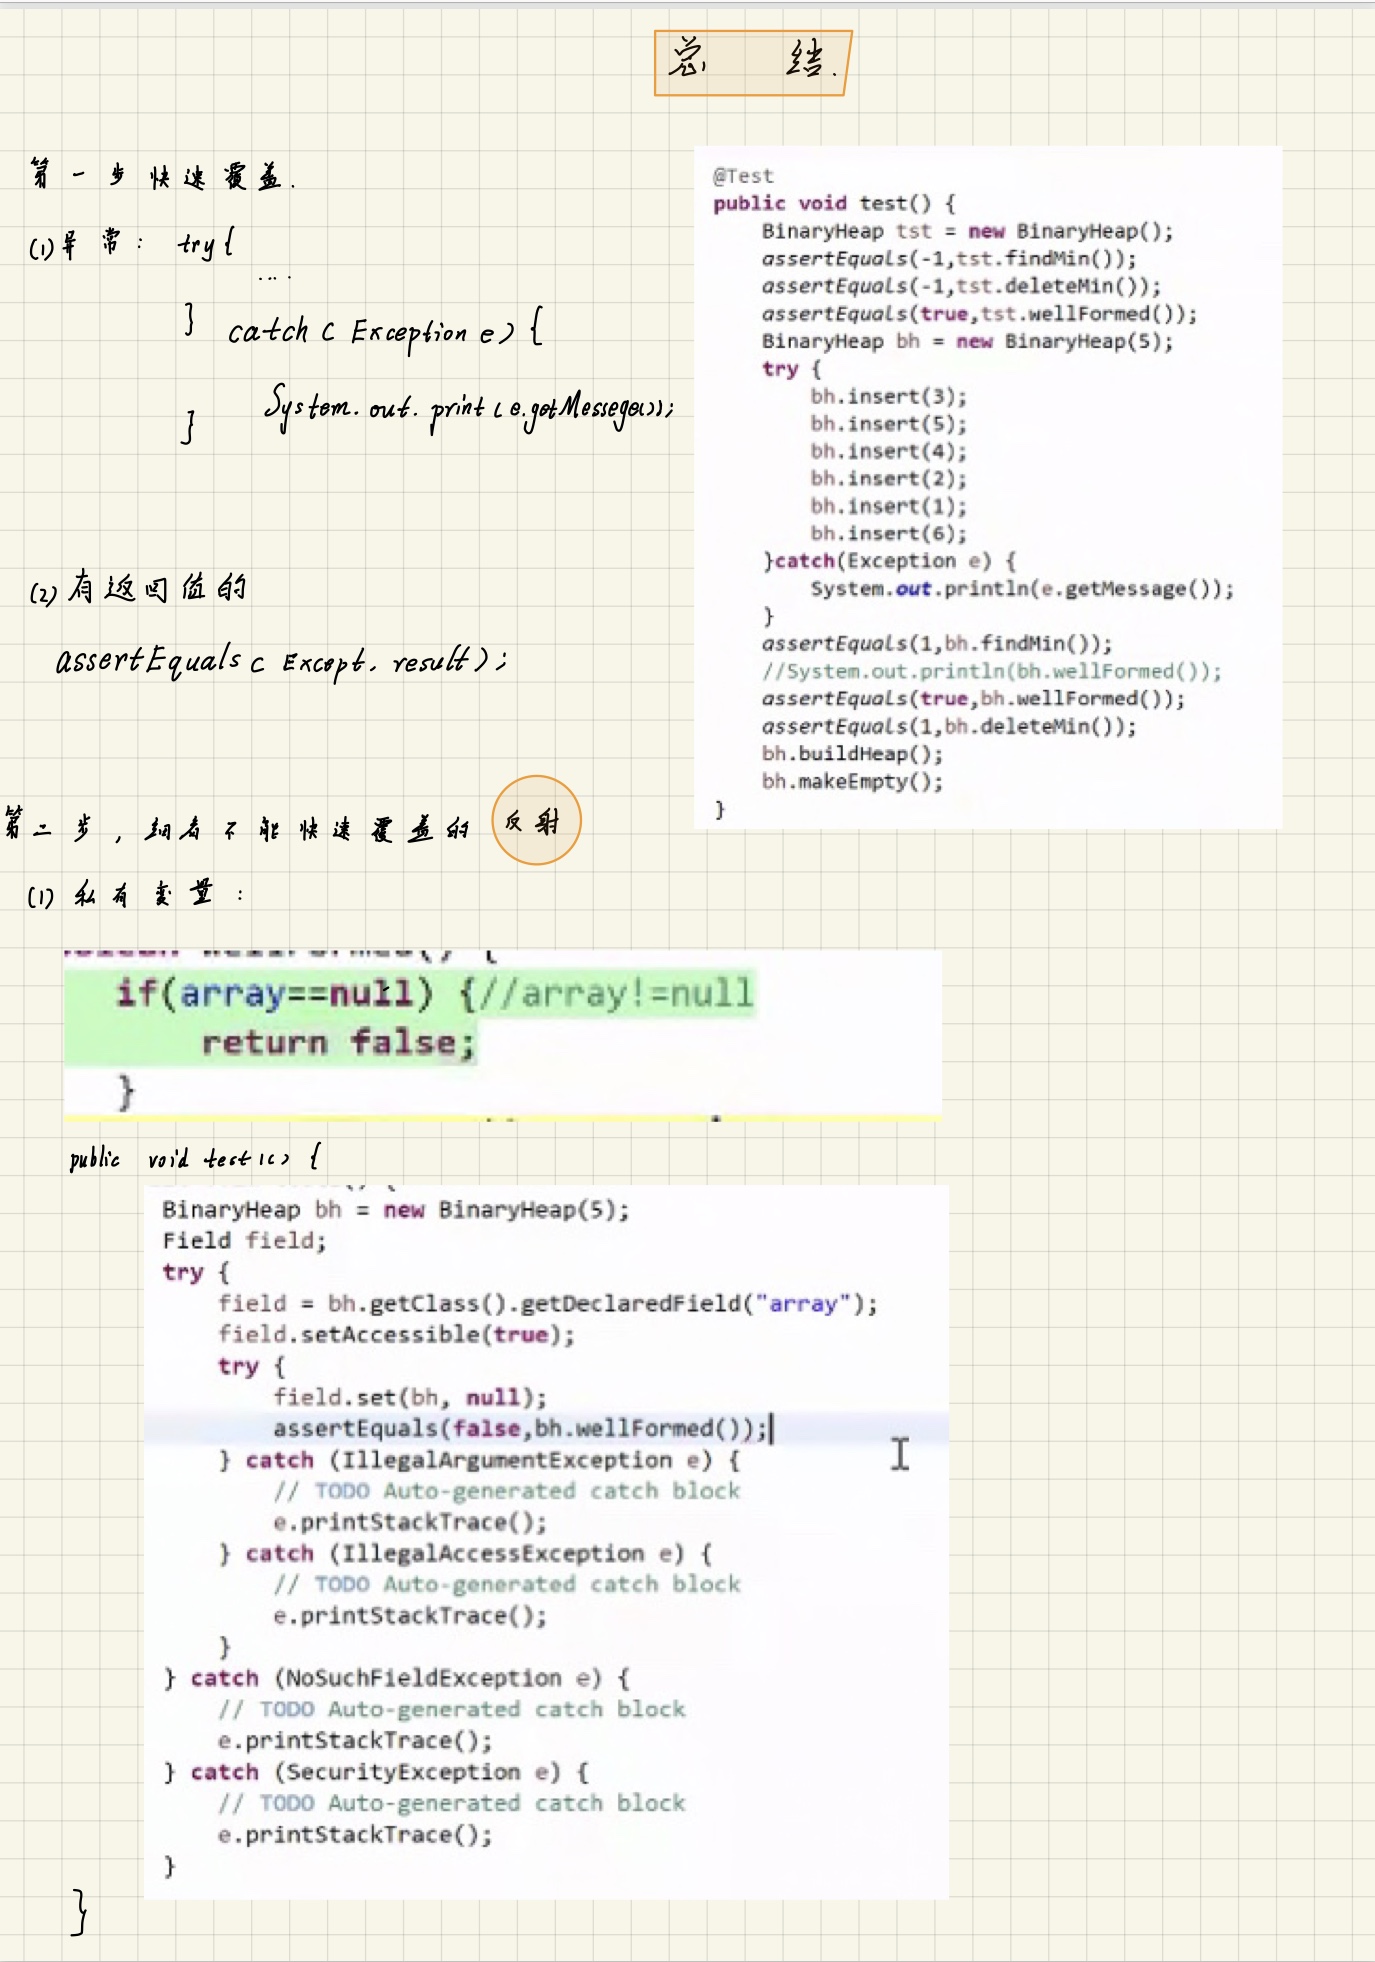 总 结.
第一步快速覆盖.
(1)异常: try{
....
} catch ( Exception e) {
System.out.print(e.getMessege());
}
(2)有返回值的
assertEquals( Except. result);
@Test
public void test() {
BinaryHeap tst = new BinaryHeap();
assertEquals(-1,tst.findMin());
assertEquals(-1,tst.deleteMin());
assertEquals(true,tst.wellFormed());
BinaryHeap bh = new BinaryHeap(5);
try {
bh.insert(3);
bh.insert(5);
bh.insert(4);
bh.insert(2);
bh.insert(1);
bh.insert(6);
}catch(Exception e) {
System.out.println(e.getMessage());
}
assertEquals(1,bh.findMin());
//System.out.println(bh.wellFormed());
assertEquals(true,bh.wellFormed());
assertEquals(1,bh.deleteMin());
bh.buildHeap();
bh.makeEmpty();
}
第二步,细看不能快速覆盖的 反射
(1)私有变量:
if(array==null) {//array!=null
return false;
}
public void test1() {
BinaryHeap bh = new BinaryHeap(5);
Field field;
try {
field = bh.getClass().getDeclaredField("array");
field.setAccessible(true);
try {
field.set(bh, null);
assertEquals(false,bh.wellFormed());
} catch (IllegalArgumentException e) {
// TODO Auto-generated catch block
e.printStackTrace();
} catch (IllegalAccessException e) {
// TODO Auto-generated catch block
e.printStackTrace();
}
} catch (NoSuchFieldException e) {
// TODO Auto-generated catch block
e.printStackTrace();
} catch (SecurityException e) {
// TODO Auto-generated catch block
e.printStackTrace();
}
}